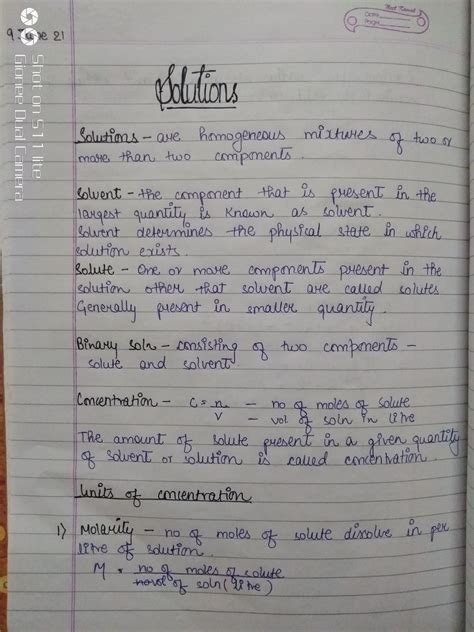 9 June 21
Date
Page
Shot on S11 lite
Gionee Dual Camera
Solutions
Solutions - are homogeneous mixtures of two or
more than two components.
Solvent - the component that is present in the
largest quantity is known as solvent.
Solvent determines the physical state in which
solution exists.
Solute - One or more components present in the
solution other that solvent are called solutes
Generally present in smaller quantity.
Binary soln - consisting of two components -
solute and solvent.
Concentration - C = n - no of moles of solute
V - vol of soln in litre
The amount of solute present in a given quantity
of solvent or solution is called concentration.
Units of concentration
1) Molarity - no of moles of solute dissolve in per
litre of solution.
M = no of moles of solute
vol of soln (litre)